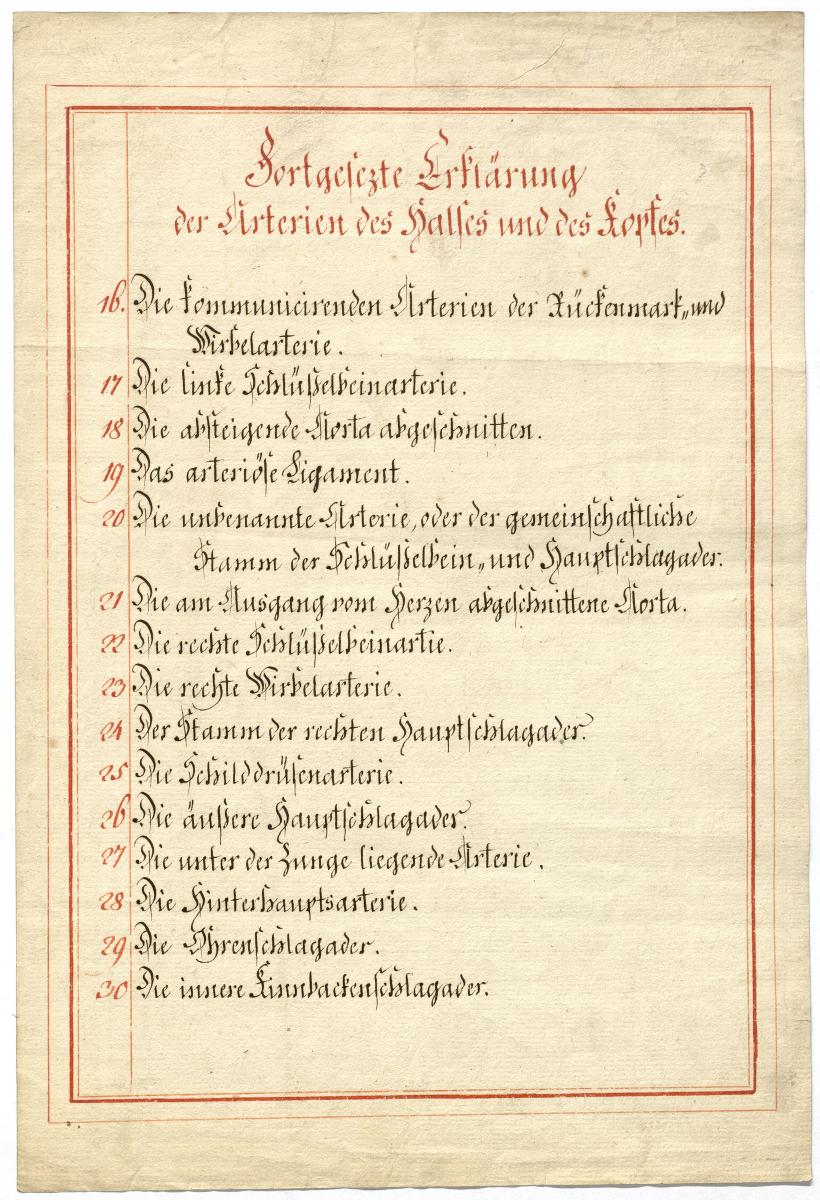 Fortgesezte Erklärung
der Arterien des Halses und des Kopfes.
16. Die kommunicirenden Arterien der Rückenmark„und
Wirbelarterie.
17 Die linke Schlüßelbeinarterie.
18 Die absteigende Aorta abgeschnitten.
19 Das arteriöse Ligament.
20 Die unbenannte Arterie, oder der gemeinschaftliche
Stamm der Schlüßelbein„und Hauptschlagader.
21 Die am Ausgang vom Herzen abgeschnittene Aorta.
22 Die rechte Schlüßelbeinartie.
23 Die rechte Wirbelarterie.
24 Der Stamm der rechten Hauptschlagader.
25 Die Schilddrüsenarterie.
26 Die äußere Hauptschlagader.
27 Die unter der Zunge liegende Arterie.
28 Die Hinterhauptsarterie.
29 Die Ohrenschlagader.
30 Die innere Kinnbackenschlagader.